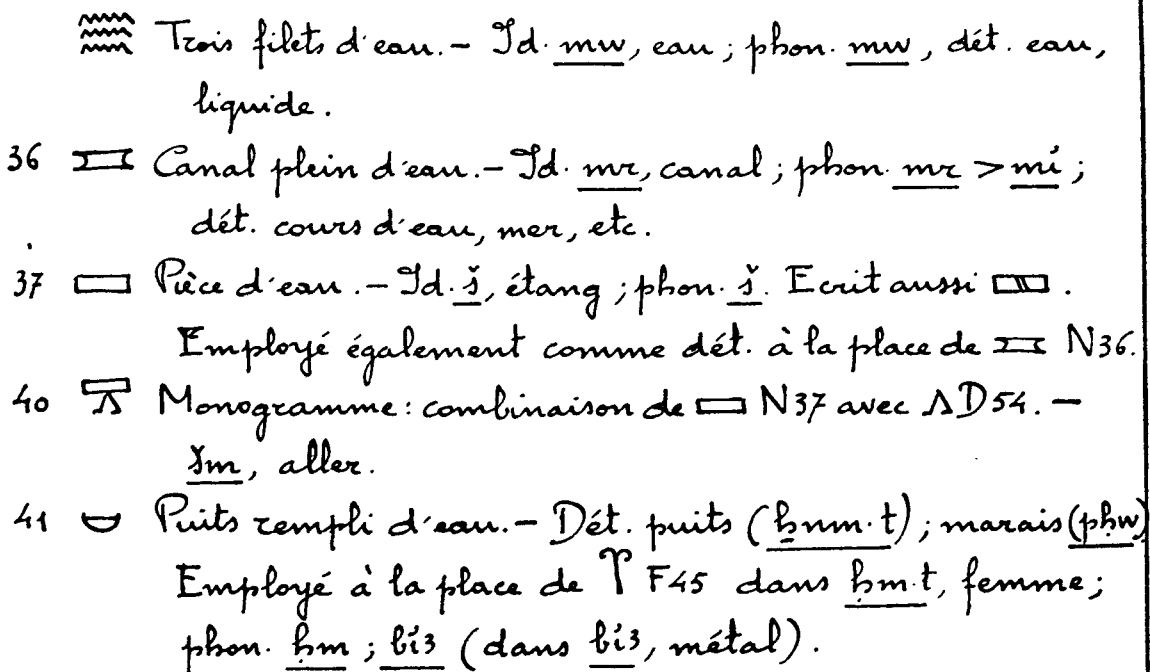 𓈗 Trois filets d'eau.- Id. mw, eau ; phon. mw, dét. eau,
liquide.
36 𓈘 Canal plein d'eau.- Id. mr, canal ; phon. mr > mı͗ ;
dét. cours d'eau, mer, etc.
37 𓈙 Pièce d'eau.- Id. š, étang ; phon. š. Ecrit aussi 𓈛.
Employé également comme dét. à la place de 𓈘 N36.
40 𓈝 Monogramme : combinaison de 𓈙 N37 avec 𓂻 D54. -
šm, aller.
41 𓈞 Puits rempli d'eau.- Dét. puits (ẖnm.t) ; marais (pḥw)
Employé à la place de 𓄹 F45 dans ḥm.t, femme ;
phon. ḥm ; bı͗ꜣ (dans bı͗ꜣ, métal).